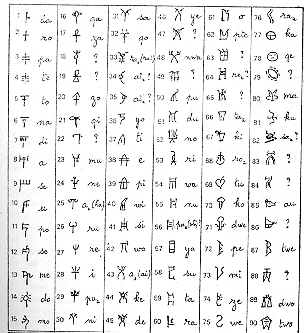 1 𐀅 da 16 𐀣 qa 31 𐀭 sa 46 𐀋 ye 61 𐀃 o 76 𐁈 ra₂
2 𐀫 ro 17 𐀼 za 32 𐀦 qo 47 𐁒 ? 62 𐁇 pte 77 𐀏 ka
3 𐀞 pa 18 𐁐 ? 33 𐁉 ra₃(rai) 48 𐁅 nwa 63 𐁕 ? 78 𐀤 qe
4 𐀳 te 19 𐁑 ? 34 ai₂? 49 𐁓 ? 79 𐁙 ?
5 𐀵 to 20 𐀿 zo 35 ai₃? 50 𐀢 pu 80 𐀔 ma
6 𐀙 na 21 𐀥 qi 36 𐀍 yo 51 𐀉 du 66 𐁋 ta₂ 81 𐀓 ku
7 𐀇 di 22 ? 37 𐀴 ti 52 𐀜 no 67 𐀑 ki 82 sa₂?
8 𐀀 a 23 𐀘 mu 38 𐀁 e 53 𐀪 ri 68 𐁊 ro₂ 83 ?
9 𐀮 se 24 𐀚 ne 39 𐀠 pi 54 𐀷 wa 69 𐀶 tu 84 ?
10 𐀄 u 25 𐁀 a₂(ha) 40 𐀹 wi 55 𐀝 nu 70 𐀒 ko 85 𐁂 au
11 𐀡 po 26 𐀬 ru 41 𐀯 si 56 71 𐁃 dwe 86 ?
12 𐀰 so 27 𐀩 re 42 𐀺 wo 57 𐀊 ya 72 𐀟 pe 87 𐁌 twe
13 𐀕 me 28 𐀂 i 43 𐁁 a₃(ai) 58 𐀱 su 73 𐀖 mi 88 ?
14 𐀈 do 29 𐁆 pu₂ 44 𐀐 ke 59 𐀲 ta 74 𐀽 ze 89 ?
15 𐀗 mo 30 𐀛 ni 45 𐀆 de 60 𐀨 ra 75 𐀸 we 90 𐁄 dwo